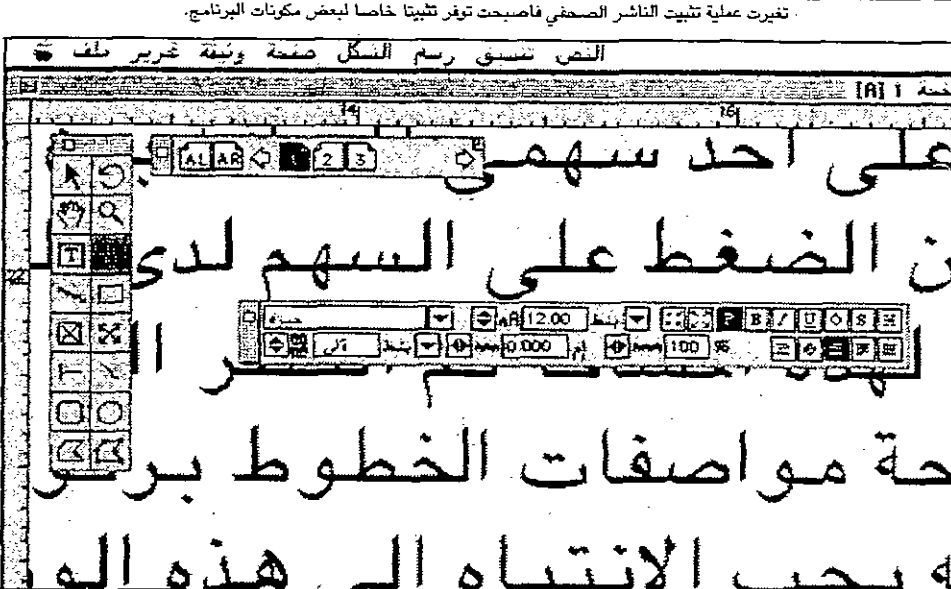 تغيرت عملية تثبيت الناشر الصحفي فاصبحت توفر تثبيتا خاصا لبعض مكونات البرنامج.
ملف تحرير وثيقة صفحة الشكل رسم تنسيق النص
[A] 1
14 16
على احد سهمي
AL AR 1 2 3
الضغط على السهم لدى
T
22
حمزة 12.00 بنط P B I U S
آلي بنط 0.000 إم 100 %
مواصفات الخطوط
يجب الانتباه الى هذه